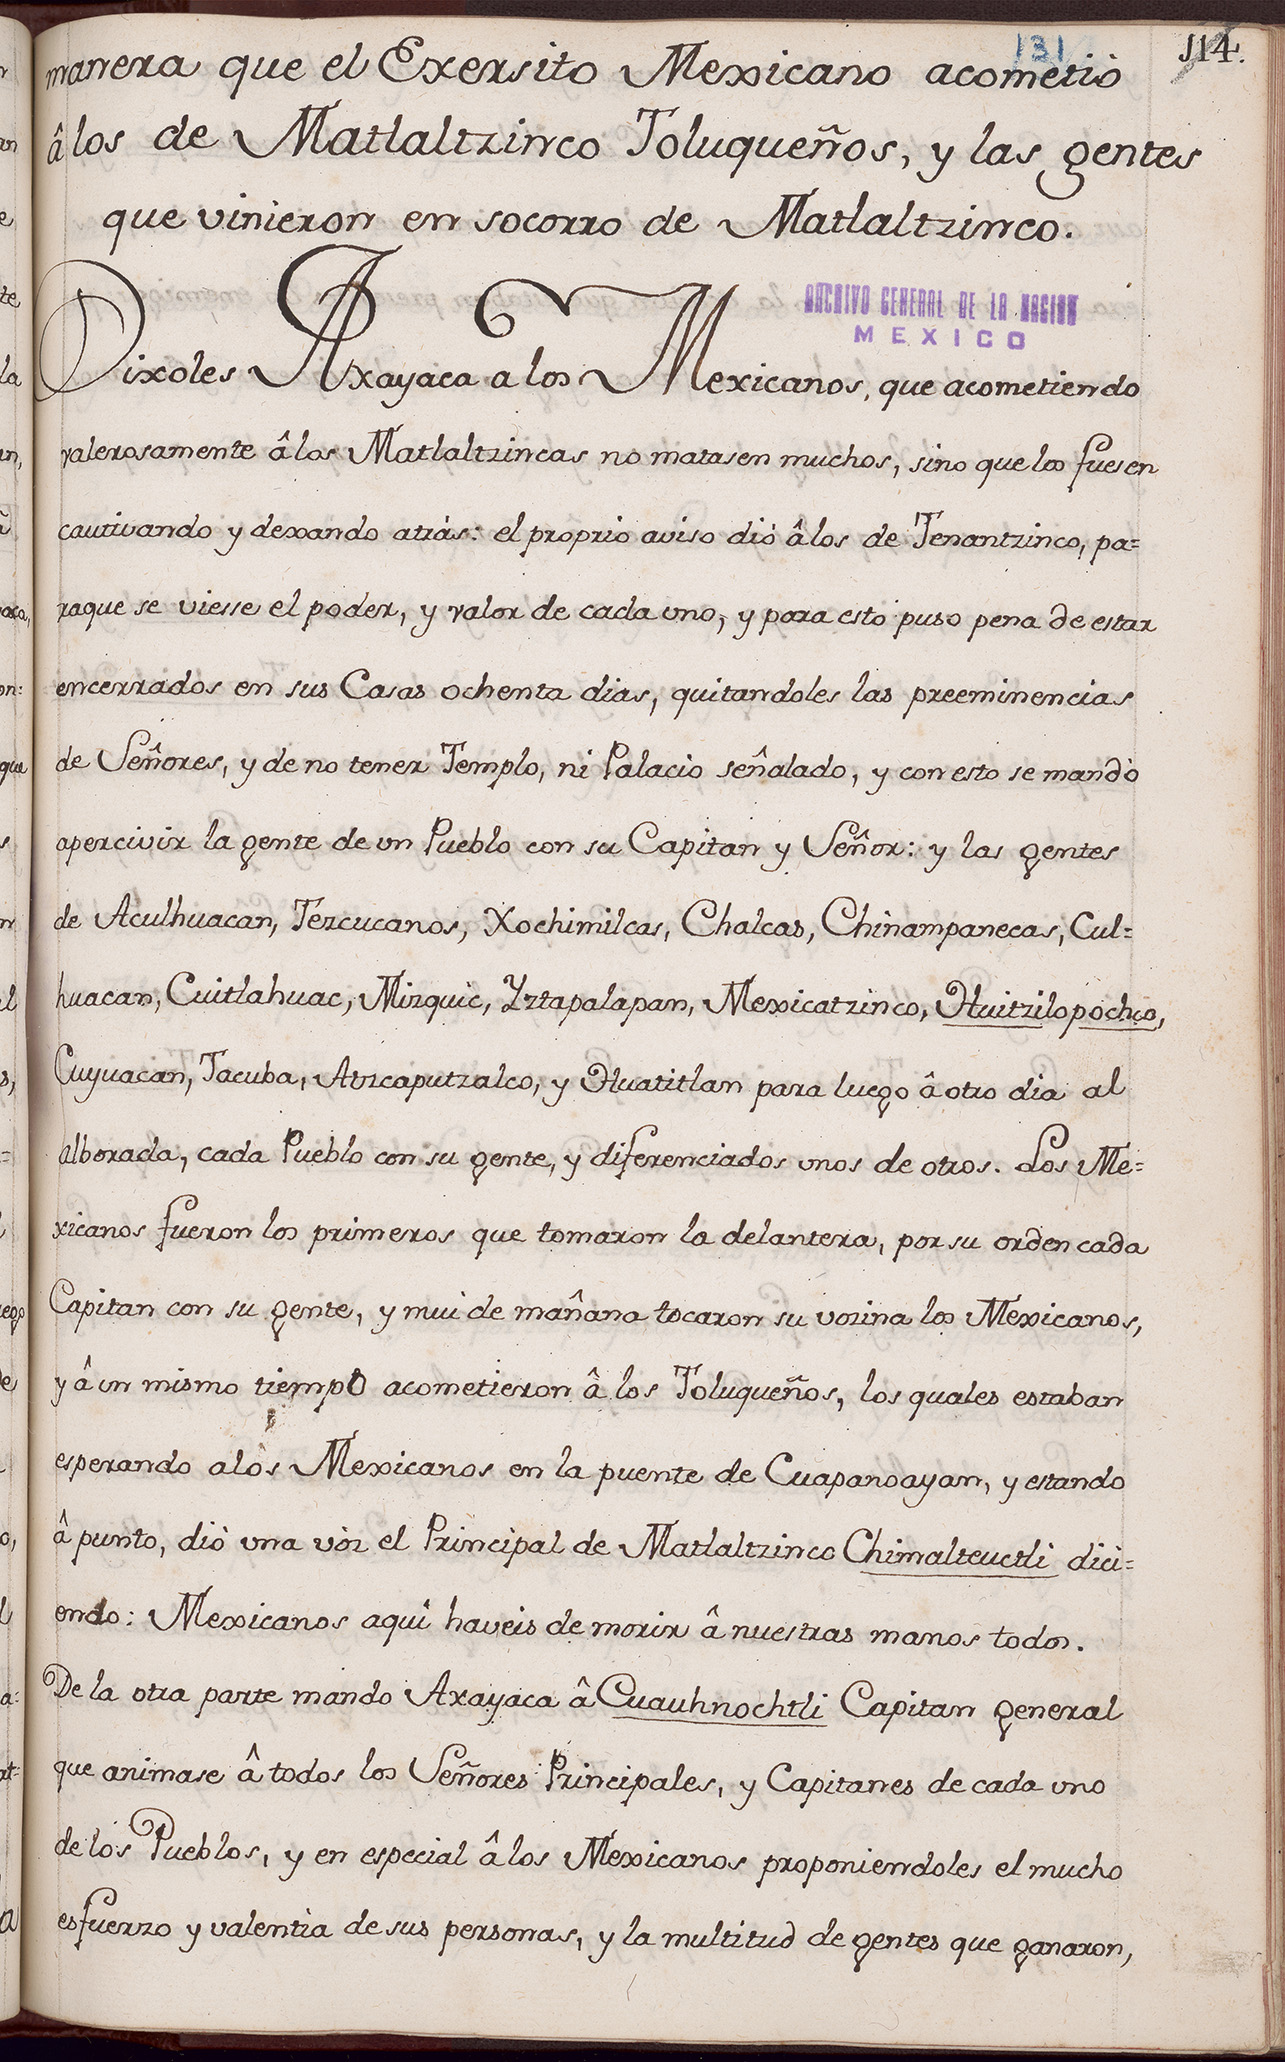 131
114.
manera que el Exersito Mexicano acometiò
â los de Matlaltzinco Toluqueños, y las gentes
que vinieron en socorro de Matlaltzinco.
ARCHIVO GENERAL DE LA NACION
MEXICO
Dixoles Axayaca a los Mexicanos, que acometiendo
valerosamente â los Matlaltzincas no matasen muchos, sino que los fuesen
cautivando y dexando atràs: el proprio aviso diò â los de Tenantzinco, pa=
raque se viesse el poder, y valor de cada uno, y para esto puso pena de estar
encerrados en sus Casas ochenta dias, quitandoles las preeminencias
de Señores, y de no tener Templo, ni Palacio señalado, y con esto se mandò
apercivir la gente de un Pueblo con su Capitan y Señor: y las gentes
de Aculhuacan, Tezcucanos, Xochimilcas, Chalcas, Chinampanecas, Cul=
huacan, Cuitlahuac, Mizquic, Yztapalapan, Mexicatzinco, Huitzilopochco,
Cuyuacan, Tacuba, Atzcaputzalco, y Huatitlan para luego â otro dia al
alborada, cada Pueblo con su gente, y diferenciados unos de otros. Los Me=
xicanos fueron los primeros que tomaron la delantera, por su orden cada
Capitan con su gente, y mui de mañana tocaron su vozina los Mexicanos,
y â un mismo tiempo acometieron â los Toluqueños, los quales estaban
esperando a los Mexicanos en la puente de Cuapanoayan, y estando
â punto, diò una vòz el Principal de Matlaltzinco Chimalteuctli dici=
endo: Mexicanos aquî haveis de morir â nuestras manos todos.
De la otra parte mando Axayaca â Cuauhnochtli Capitan general
que animase â todos los Señores Principales, y Capitanes de cada uno
de los Pueblos, y en especial â los Mexicanos proponiendoles el mucho
esfuerzo y valentìa de sus personas, y la multitud de gentes que ganaron,